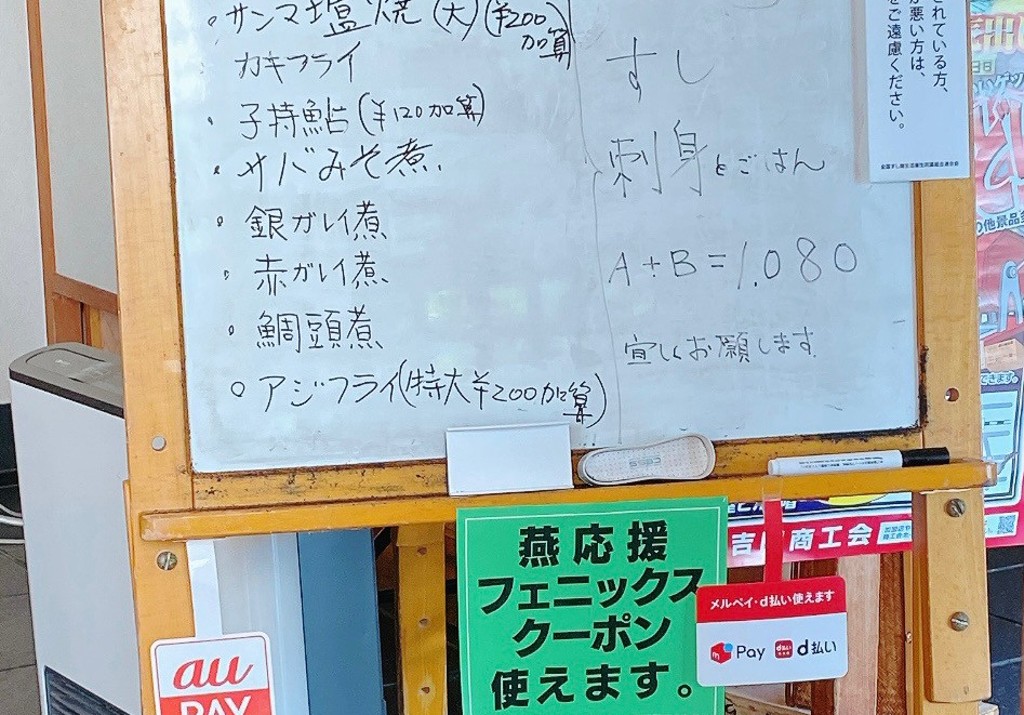 。サンマ塩焼(大)(¥200加算)
カキフライ
・子持鮎(¥120加算)
・サバみそ煮
。銀ガレイ煮
・赤ガレイ煮
。鯛頭煮
○アジフライ(特大¥200加算)
すし
刺身とごはん
A+B=1.080
宜しくお願します
されている方、
が悪い方は、
をご遠慮ください。
の他景品多
できます。
商工会
燕応援
フェニックス
クーポン
使えます。
メルペイ・d払い使えます
Pay d払い
au
PAY